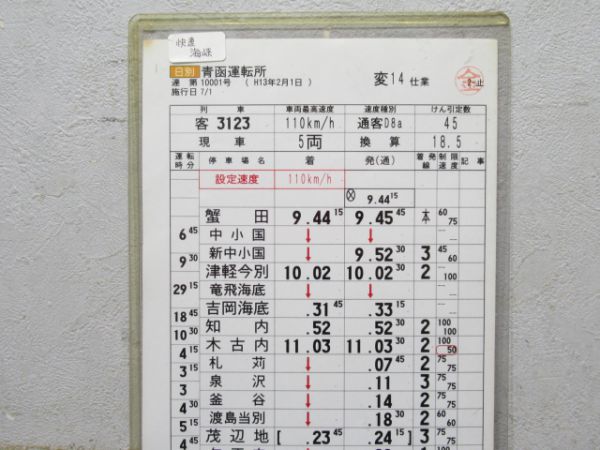 快速
海峡
日別 青函運転所
達 第10001号 ( H13年2月1日 )
施行日 7/1
変14 仕業
金
列 車 車両最高速度 速度種別 けん引定数
客 3123 110km/h 通客D8a 45
現 車 5両 換 算 18.5
運転時分 停車場名 着 発(通) 着線 発線 制限速度 記事
設定速度 110km/h
9.44 15
蟹 田 9.44 15 9.45 45 本 60 75
6 45
中小国 ↓ ↓
9 30
新中小国 ↓ 9.52 30 3 45 60
津軽今別 10.02 10.02 30 2 100
29 15
竜飛海底 ↓ ↓
吉岡海底 .31 45 .33 15
18 45
知 内 .52 .52 30 2 100 100
10 30
木古内 11.03 11.03 30 2 100 50
4 15
札 苅 ↓ .07 45 2 75 75
3
泉 沢 ↓ .11 3 75
3
釜 谷 ↓ .14 2 75 75
4 30
渡島当別 ↓ .18 30 2 60
5 15
茂辺地 [ .23 45 .24 15 ] 3 75 75
4 45